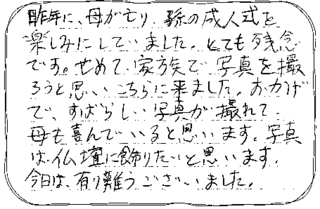 昨年に、母が亡り、孫の成人式を
楽しみにしていました。とても残念
です。せめて、家族で写真を撮
ろうと思い、こちらに来ました。おかげ
で、すばらしい写真が撮れて
母も喜んでいると思います。写真
は、仏壇に飾りたいと思います。
今日は、有り難うございました。